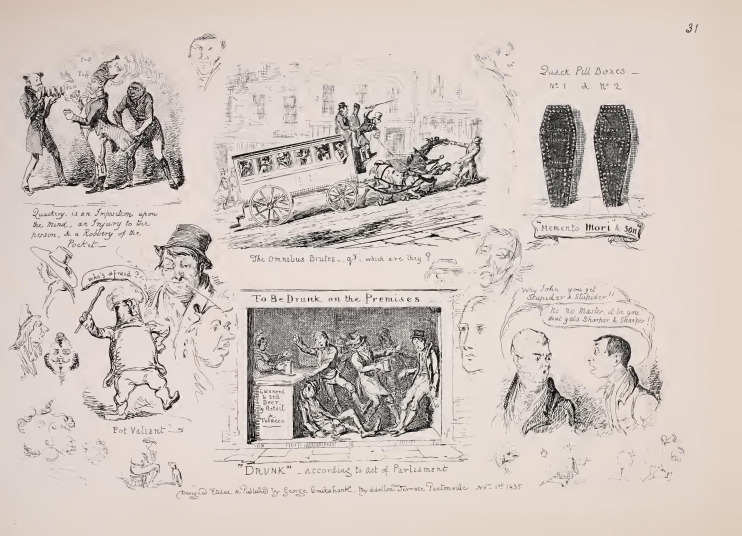 31
Quackery is an Imposition upon
the mind, an Injury to the
person, & a Robbery of the
Pocket
The Omnibus Brutes - qy. which are they?
Quack Pill Boxes
No. 1 & No. 2
"Memento Mori" & Son
who's afraid?
Pot Valiant
To Be Drunk on the Premises
Licensed
to Sell
Beer
by Retail
&
Tobacco
"DRUNK" - according to act of Parliament
Why John you get
Stupider & Stupider!!
No no Master, it be you
that gets Sharper & Sharper!
Designed Etched & Published by George Cruikshank. Myddelton Terrace Pentonville Novr. 1st 1835